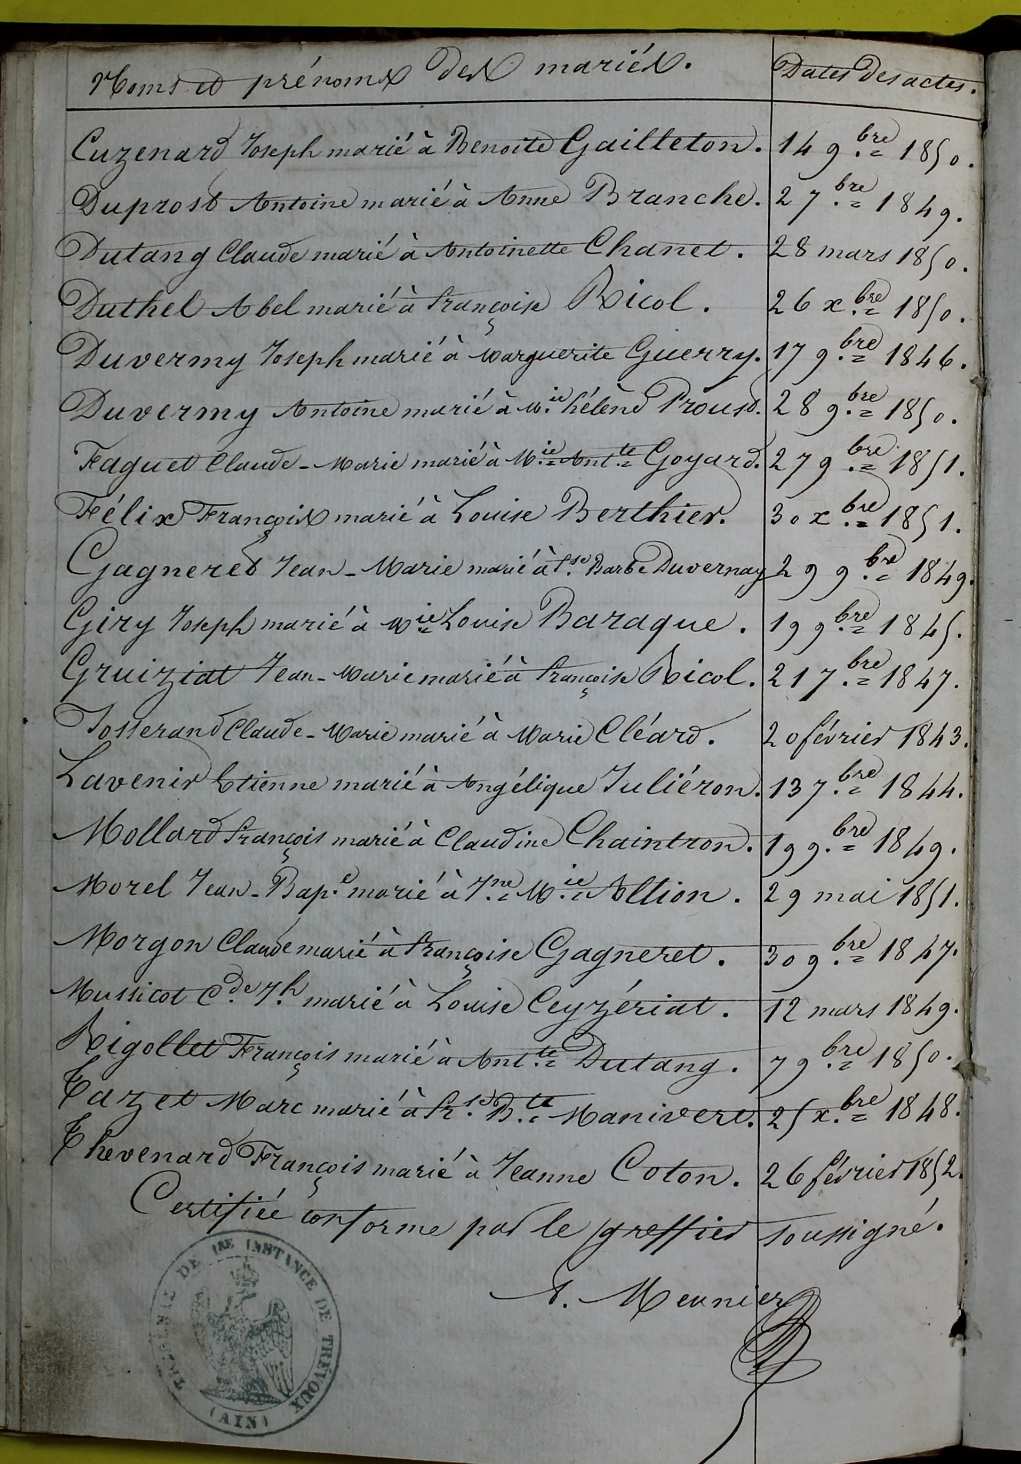 Noms et prénoms des mariés. Dates des actes.
Cuzenard Joseph marié à Benoite Gailleton. 14 9.bre 1850.
Duprost Antoine marié à Anne Branche. 2 7.bre 1849.
Dutang Claude marié à Antoinette Chanet. 28 mars 1850.
Duthel Abel marié à françoise Ricol. 26 x.bre 1850.
Duvermy Joseph marié à Marguerite Guerry. 17 9.bre 1846.
Duvermy Antoine marié à M.ie hélène Proust. 28 9.bre 1850.
Faguet Claude-Marie marié à M.ie Ant.te Goyard. 27 9.bre 1851.
Félix François marié à Louise Berthier. 30 x.bre 1851.
Gagneret Jean-Marie marié à f.se Barbe Duvernay 29 9.bre 1849.
Giry Joseph marié à M.ie Louise Baraque. 19 9.bre 1845.
Gruiziat Jean-Marie marié à françoise Ricol. 21 7.bre 1847.
Josserand Claude-Marie marié à Marie Cléard. 20 février 1843.
Lavenir Etienne marié à Angélique Juliéron. 13 7.bre 1844.
Mollard françois marié à Claudine Chaintron. 19 9.bre 1849.
Morel Jean-Bap.e marié à J.ne M.ie Altion. 29 mai 1851.
Morgon Claude marié à françoise Gagneret. 30 9.bre 1847.
Mussicot C.de J.h marié à Louise Ceyzériat. 12 mars 1849.
Rigollet François marié à Ant.te Dutang. 7 9.bre 1850.
Tazet Marc marié à fr.se B.te Manivert. 25 x.bre 1848.
Thevenard François marié à Jeanne Coton. 26 février 1852.
Certifiée conforme par le greffier soussigné.
A. Meunier
TRIBUNAL DE 1RE INSTANCE DE TRÉVOUX
(AIN)